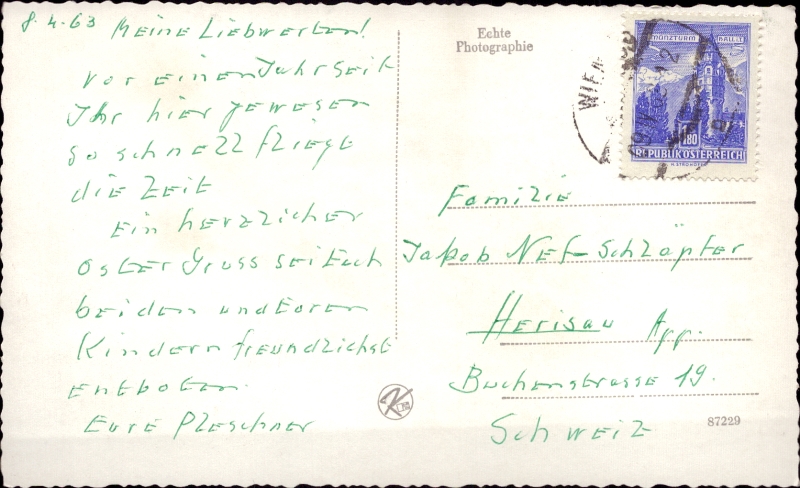 8.4.63 Meine Liebwerten!
vor einem Jahr seit
Ihr hier gewesen
so schnell fliegt
die Zeit
Ein herzlicher
Oster Gruss sei Euch
beiden und Euren
Kindern freundlichst
entboten.
Eure Pleschner
Echte
Photographie
WIEN
MÜNZTURM HALL i.T.
1.80
REPUBLIK ÖSTERREICH
Familie
Jakob Nef-Schläpfer
Herisau App.
Buchenstrasse 19.
Schweiz
87229